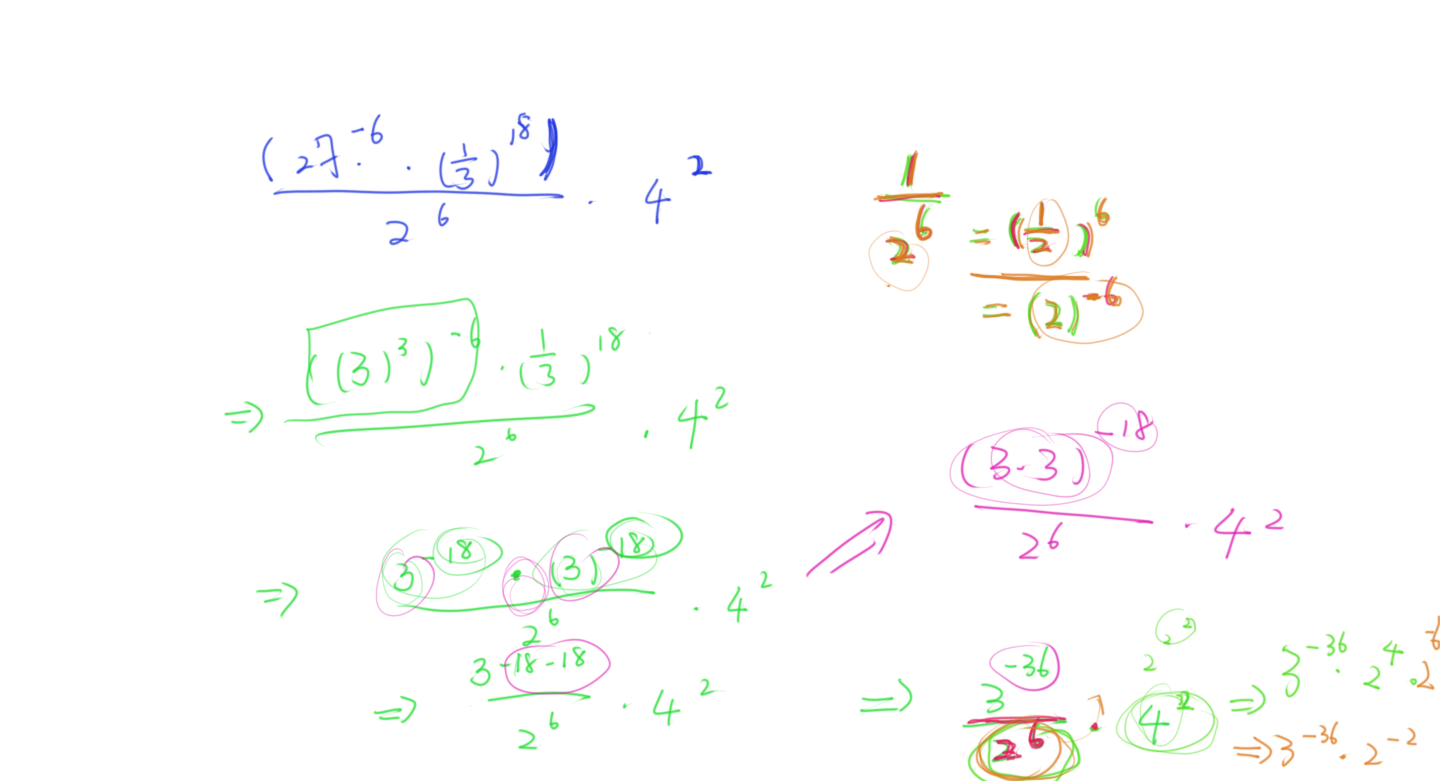 (27^{-6} · (1/3)^{18}) / 2^6 · 4^2
⇒ ((3)^3)^{-6} · (1/3)^{18} / 2^6 · 4^2
⇒ 3^{-18} · (3)^{-18} / 2^6 · 4^2
⇒ 3^{-18-18} / 2^6 · 4^2
1 / 2^6 = (1/2)^6
= (2)^{-6}
(3·3)^{-18} / 2^6 · 4^2
2^{2^2}
⇒ 3^{-36} / 2^6 · 4^2 ⇒ 3^{-36} · 2^4 · 2^{-6}
⇒ 3^{-36} · 2^{-2}